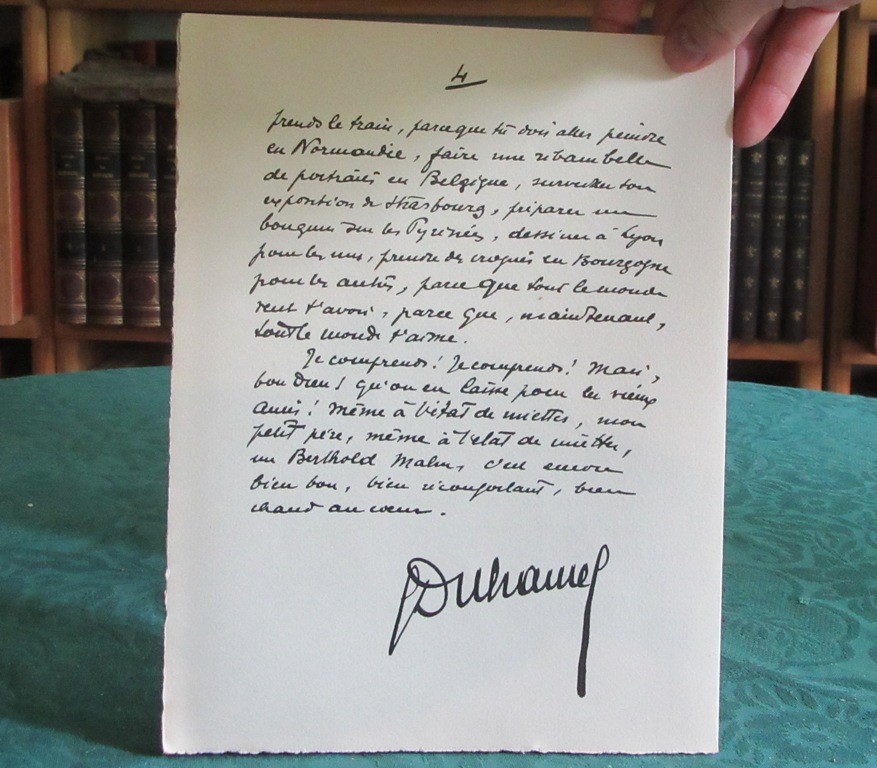 4
prends le train, parce que tu dois aller peindre
en Normandie, faire une ribambelle
de portraits en Belgique, surveiller ton
exposition de Strasbourg, préparer un
bouquin sur les Pyrénées, dessiner à Lyon
pour les uns, prendre des croquis en Bourgogne
pour les autres, parce que tout le monde
veut t'avoir, parce que, maintenant,
tout le monde t'aime.
Je comprends! Je comprends! Mais,
bon Dieu! qu'on en laisse pour les vieux
amis! Même à l'état de miettes, mon
petit père, même à l'état de miettes,
un Berthold Mahn, c'est encore
bien bon, bien réconfortant, bien
chaud au cœur.
GDuhamel